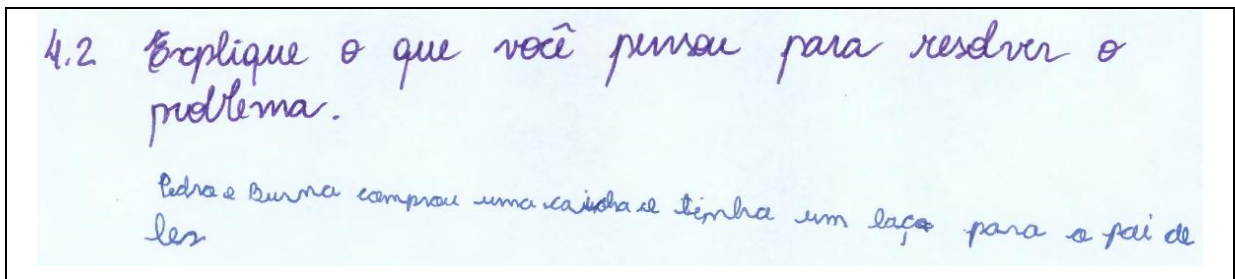 4.2 Explique o que você pensou para resolver o
problema.
Pedro e Burna comprou uma caixha e tinha um laço para o pai de
les